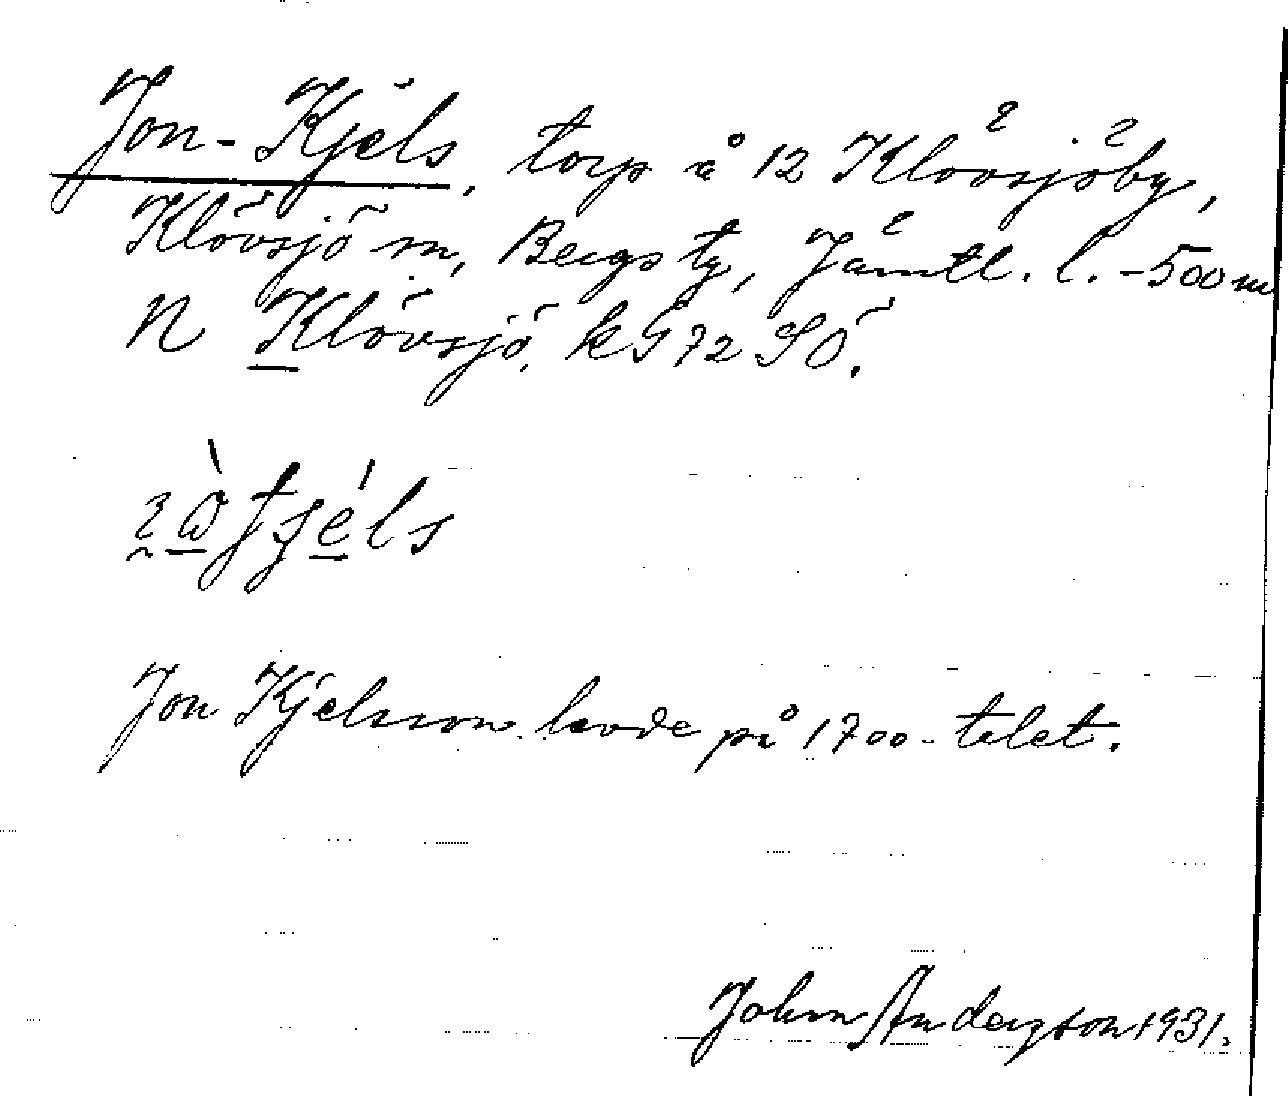 Jon-Kjels, torp å 12 Klövsjöby,
Klövsjö sn, Bergs tg, Jämtl. l. - 500 m
N Klövsjö, k 972 SÖ.
Jon Kjelsson levde på 1700-talet.
John Andersson 1931.